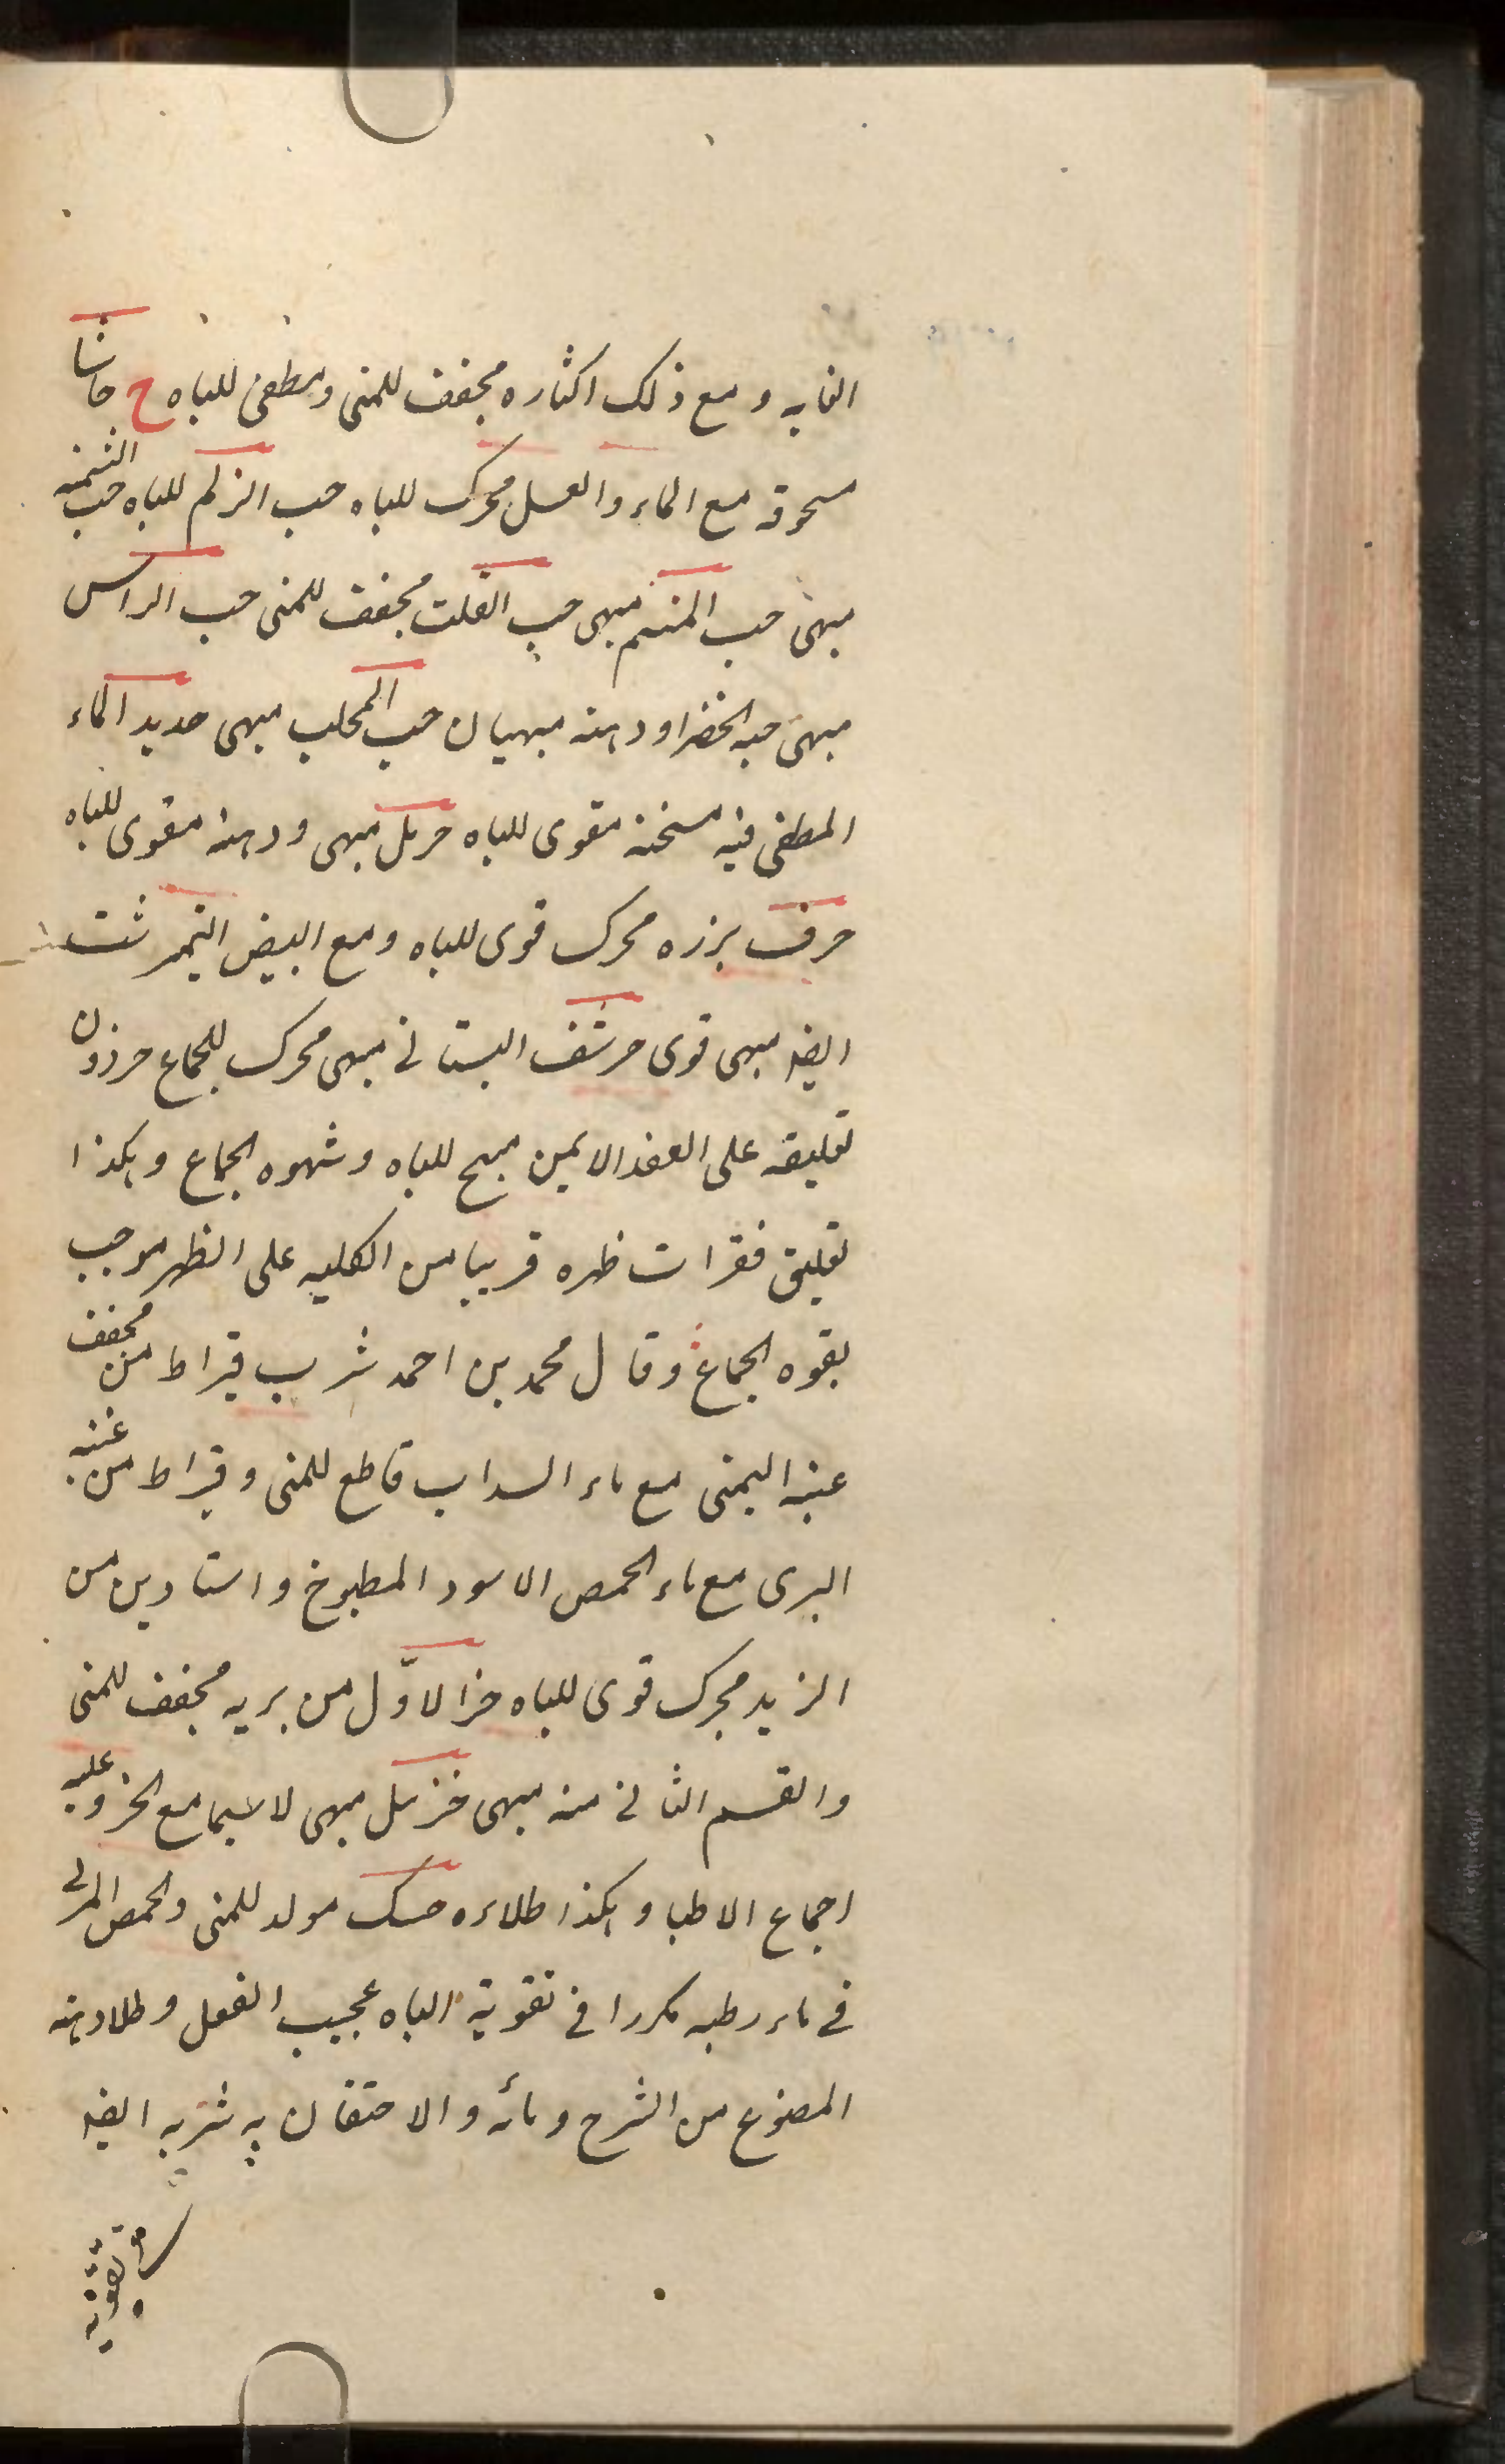 الغايه و مع ذلك اكثاره مجفف للمنى و مطفى للباه ح حاشا
مسحوقه مع الماء و العسل محرك للباه حب الزلم للباه حب السمنه
مبهى حب المنسم مبهى حب القلت مجفف للمنى حب الراس
مبهى حبه الخضرا و دهنه مبهيان حب المحلب مبهى حديد الماء
المطفى فيه مسخنه مقوى للباه حرمل مبهى و دهنه مقوى للباه
حرف بزره محرك قوى للباه و مع البيض النيمرشت
ايضا مبهى قوى حرشف البستانى مبهى محرك للجماع حرذون
تعليقه على العضد الايمن مهيج للباه و شهوه الجماع و هكذا
تعليق فقرات ظهره قريبا من الكليه على الظهر موجب
لقوه الجماع و قال محمد بن احمد شرب قيراط من مجفف
عينه اليمنى مع ماء السداب قاطع للمنى و قيراط من عينه
اليرى مع ماء الحمص الاسود المطبوخ و استارين من
الزبد محرك قوى للباه خزا لاوّل من بريه مجفف للمنى
و القسم الثانى منه مبهى خزميل مبهى لاسيما مع الخر و عليه
اجماع الاطبا و هكذا طلاءه حسك مولد للمنى و الحمص المربى
فى ماء رطبه مكررا فى تقوية الباه عجيب الفعل و طلا دهنه
المصنوع من الشرح و مائه و الاحتقان به شربه ايضا
تقويه